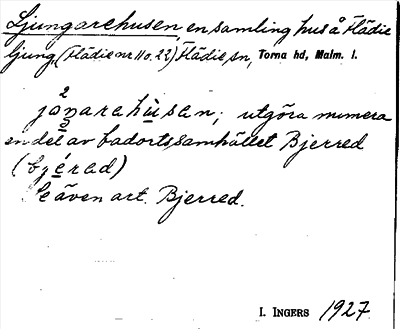 Ljungarehusen, en samling hus å Flädie
ljung, (Flädie nr 11 o. 22) Flädie sn, Torna hd, Malm. l.
utgöra numera
en del av badortssamhället Bjerred
(byérad)
Se även art. Bjerred.
I. INGERS 1927.